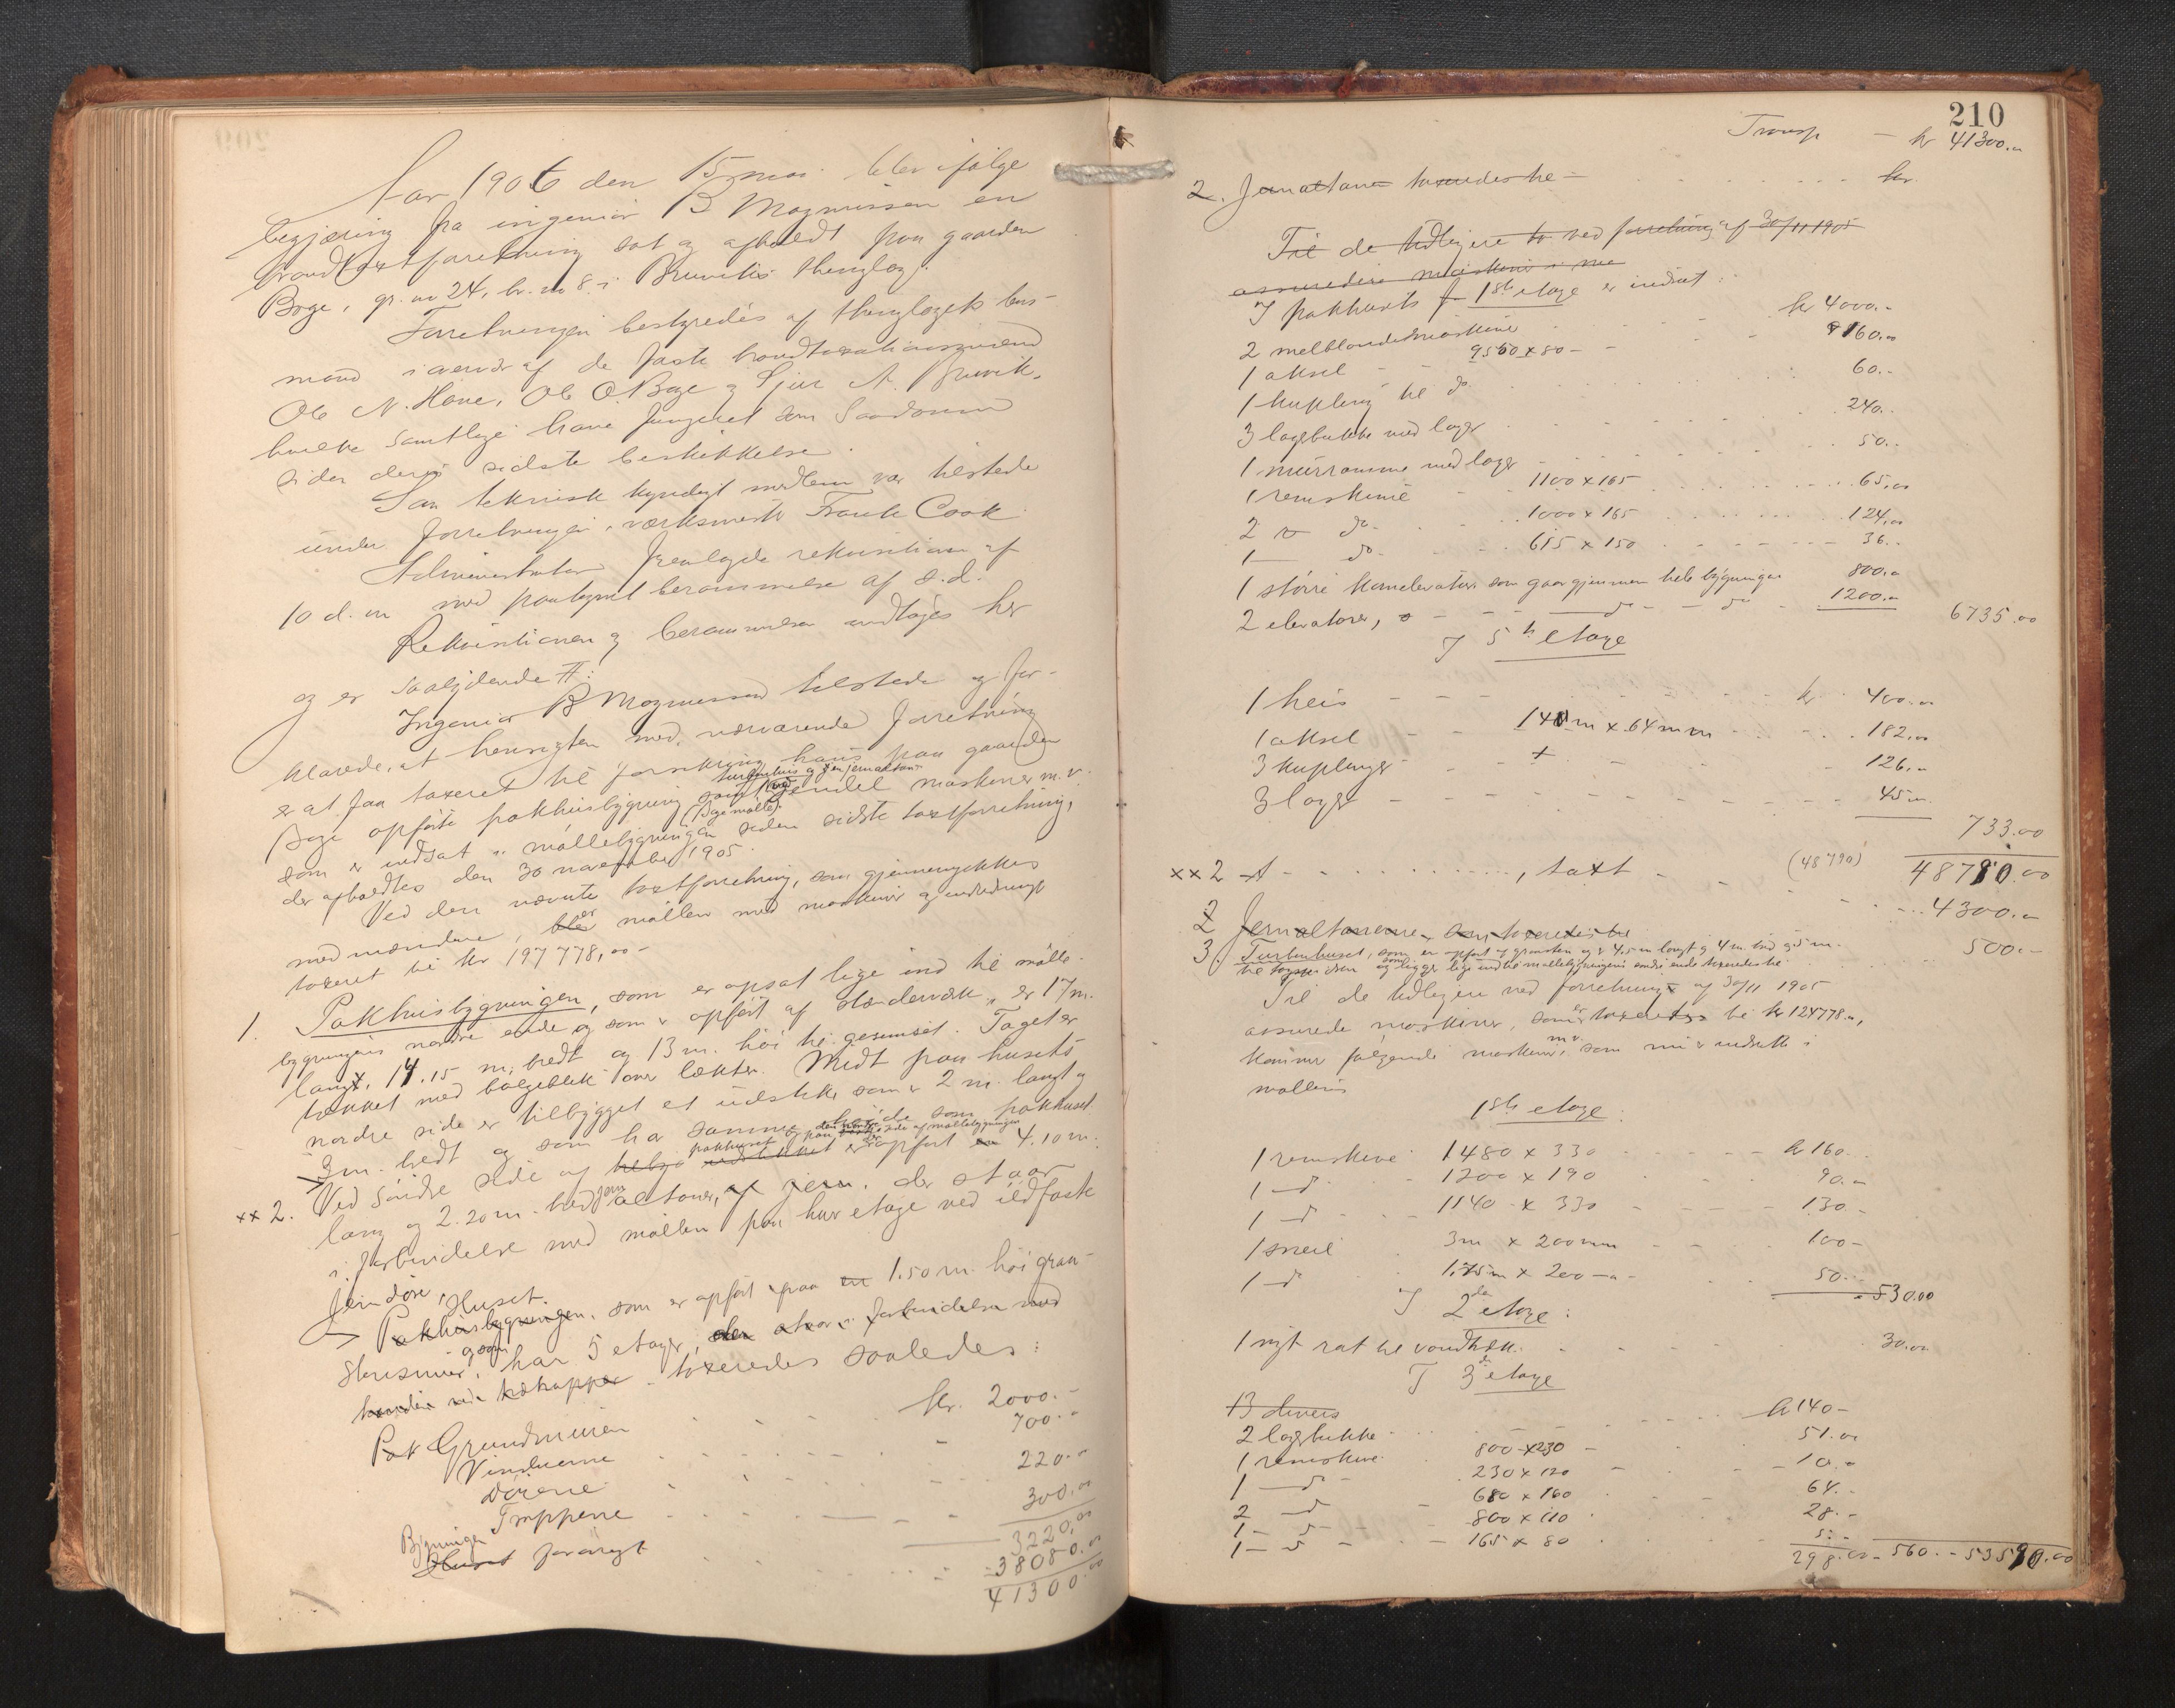 Aar 1906 den 15 mai blev ifølge
begjæring fra ingeniør B Magnussen en
brandtaxtforretning sat og afholdt paa gaarden
Boge, gr. no 24, br. no 8 i Bruviks thinglag.
Forretningen bestyredes af thinglagets lens-
mand i nærvær af de faste brandtaxationsmænd
Ole N. Hove, Ole O. Boge og Sjur A. Bruvik,
hvilke samtlige have fungeret som Saadanne
siden deres sidste beskikkelse.
Som teknisk kyndigt medlem var tilstede
under forretningen, værksmester Frank Cook.
Administrator fremlagde rekvisition af
10 d. m med paategnet berammelse af s.d.
Rekvisitionen og berammelsen indtages her
og er saalydende #:
Ingeniør B Magnussen tilstede og for-
klarede, at hensigten med nærværende forretning
er at faa taxeret til forsikring hans paa gaarden
turbinhus og jernaltan
Boge opførte pakhusbygning samt endel maskiner m.v.
(Boge mølle)
som er indsat i møllebygningen siden sidste taxtforretning,
der afholdtes den 30 november 1905.
Ved den nævnte taxtforretning, som gjennemgikkes
medmændene, blev er møllen med maskiner og indredning
taxeret til kr 197778,00 -
1. Pakhusbygningen, som er opsat lige ind til mølle-
bygningens nordre ende og som er opført af stenderværk, er 17 m.
langt, 14.15 m. bredt og 13 m. høi til gesimset. Taget er
tækket med bølgeblik over lækter. Midt paa husets
nordre side er tilbygget et udstik som er 2 m. langt og
3 m. bredt og som har samme høide som pakhuset.
pakhuset og paa side af møllebygningen
Ved søndre side af er opført 4.10 m.
xx 2. lang og 2.20 m. bred jern altaner, af jern. der staar
i forbindelse med møllen paa hver etage ved ildfaste
jerndøre. Huset
Pakhusbygningen, som er opført paa en 1.50 m. høi graa-
stensmur, og som har 5 etager, der staar i forbindelse med
taxeredes saaledes:
Grundmuren kr. 2000.-
Vinduerne 700.-
Dørene 220.-
Trapperne 300.00
3220,00
Bygningen
Huset forøvrigt 38080.00
41300.00
210
Transp - kr 41300.00
2. Jernaltanen taxeredes til - kr.
Til de tidligere ved forretning af 30/11 1905
assurerede maskiner
I pakhusets 1ste etage er indsat:
2 melblandemaskiner kr 4000.-
1 aksel 9500 x 80 - 160.00
1 kupling til do 60.-
3 lagerbukke med lager 240.-
1 murramme med lager 50.-
1 remskive 1100 x 165 65.00
2 do 1000 x 165 124,00
1 — do 615 x 150 36.-
1 større kornelevator som gaar gjennem hele bygningen 800.00
2 elevatorer, do - do 1200.00 6735.00
I 5te etage
1 heis kr 400.00
1 aksel 14 m x 64 mm 182,00
3 kuplinger 126,00
3 lager 45.00
733.00
xx 2 , taxt (48790) 48780.00
4300.00
2 Jernaltanerne, som taxeredes til
3. Turbinhuset, som er opført af graasten og er 4.5 m langt og 4 m. bred og 5 m.
til og ligger lige ind til møllebygningens søndre ende taxeredes til 500.-
Til de tidligere ved forretning af 30/11 1905
assurerede maskiner, som er taxeret til kr 124778.00,
kommer følgende maskiner m.v. som nu er indsat i
møllen
1ste etage
1 remskive 1480 x 330 kr 160.-
1 — do 1200 x 190 90.00
1 — do 1140 x 330 130 -
1 sneil 3m x 200 mm 100 -
1 — do 1.75 m x 200 — 50.-
530.00
I 2den etage:
1 nyt rat til vandhæk. 30.00
I 3de etage
13 divers
2 lagerbukke kr 140 -
1 remskive 800 x 230 51.00
1 — do 230 x 120 10.-
2 — do 680 x 160 64.-
1 — do 800 x 110 28.-
1 — do 165 x 80 5.-
298.00 - 560.- 53590.00